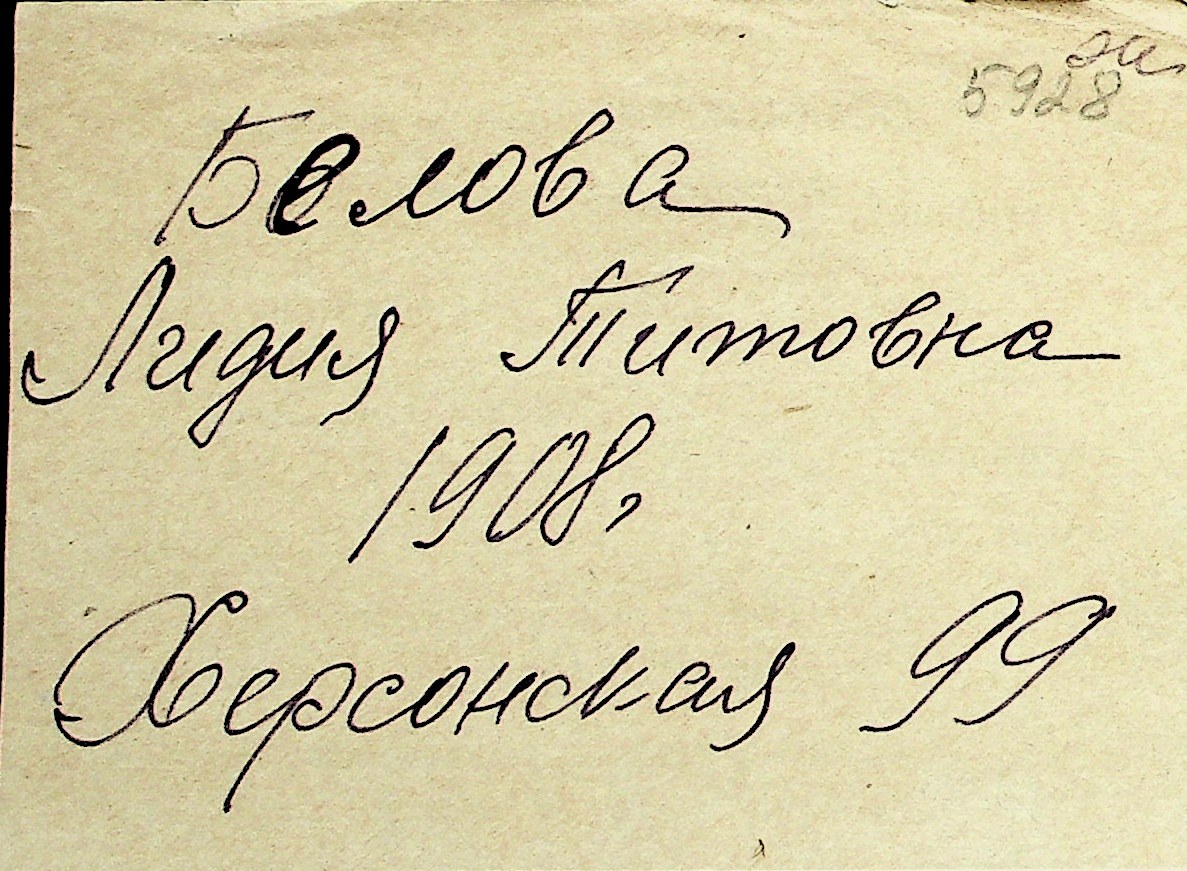 5928
Белова
Лидия Титовна
1908,
Херсонская 99